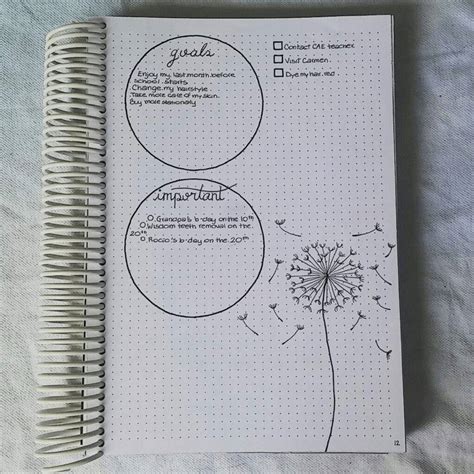 goals
Enjoy my last month before
school starts
Change my hairstyle
Take more care of my skin.
Buy more stationaty
Contact CAE teacher
Visit Carmen
Dye my hair red
important
Grandpa's b-day on the 10th
Wisdom teeth removal on the
20th
Rocio's b-day on the 20th
12